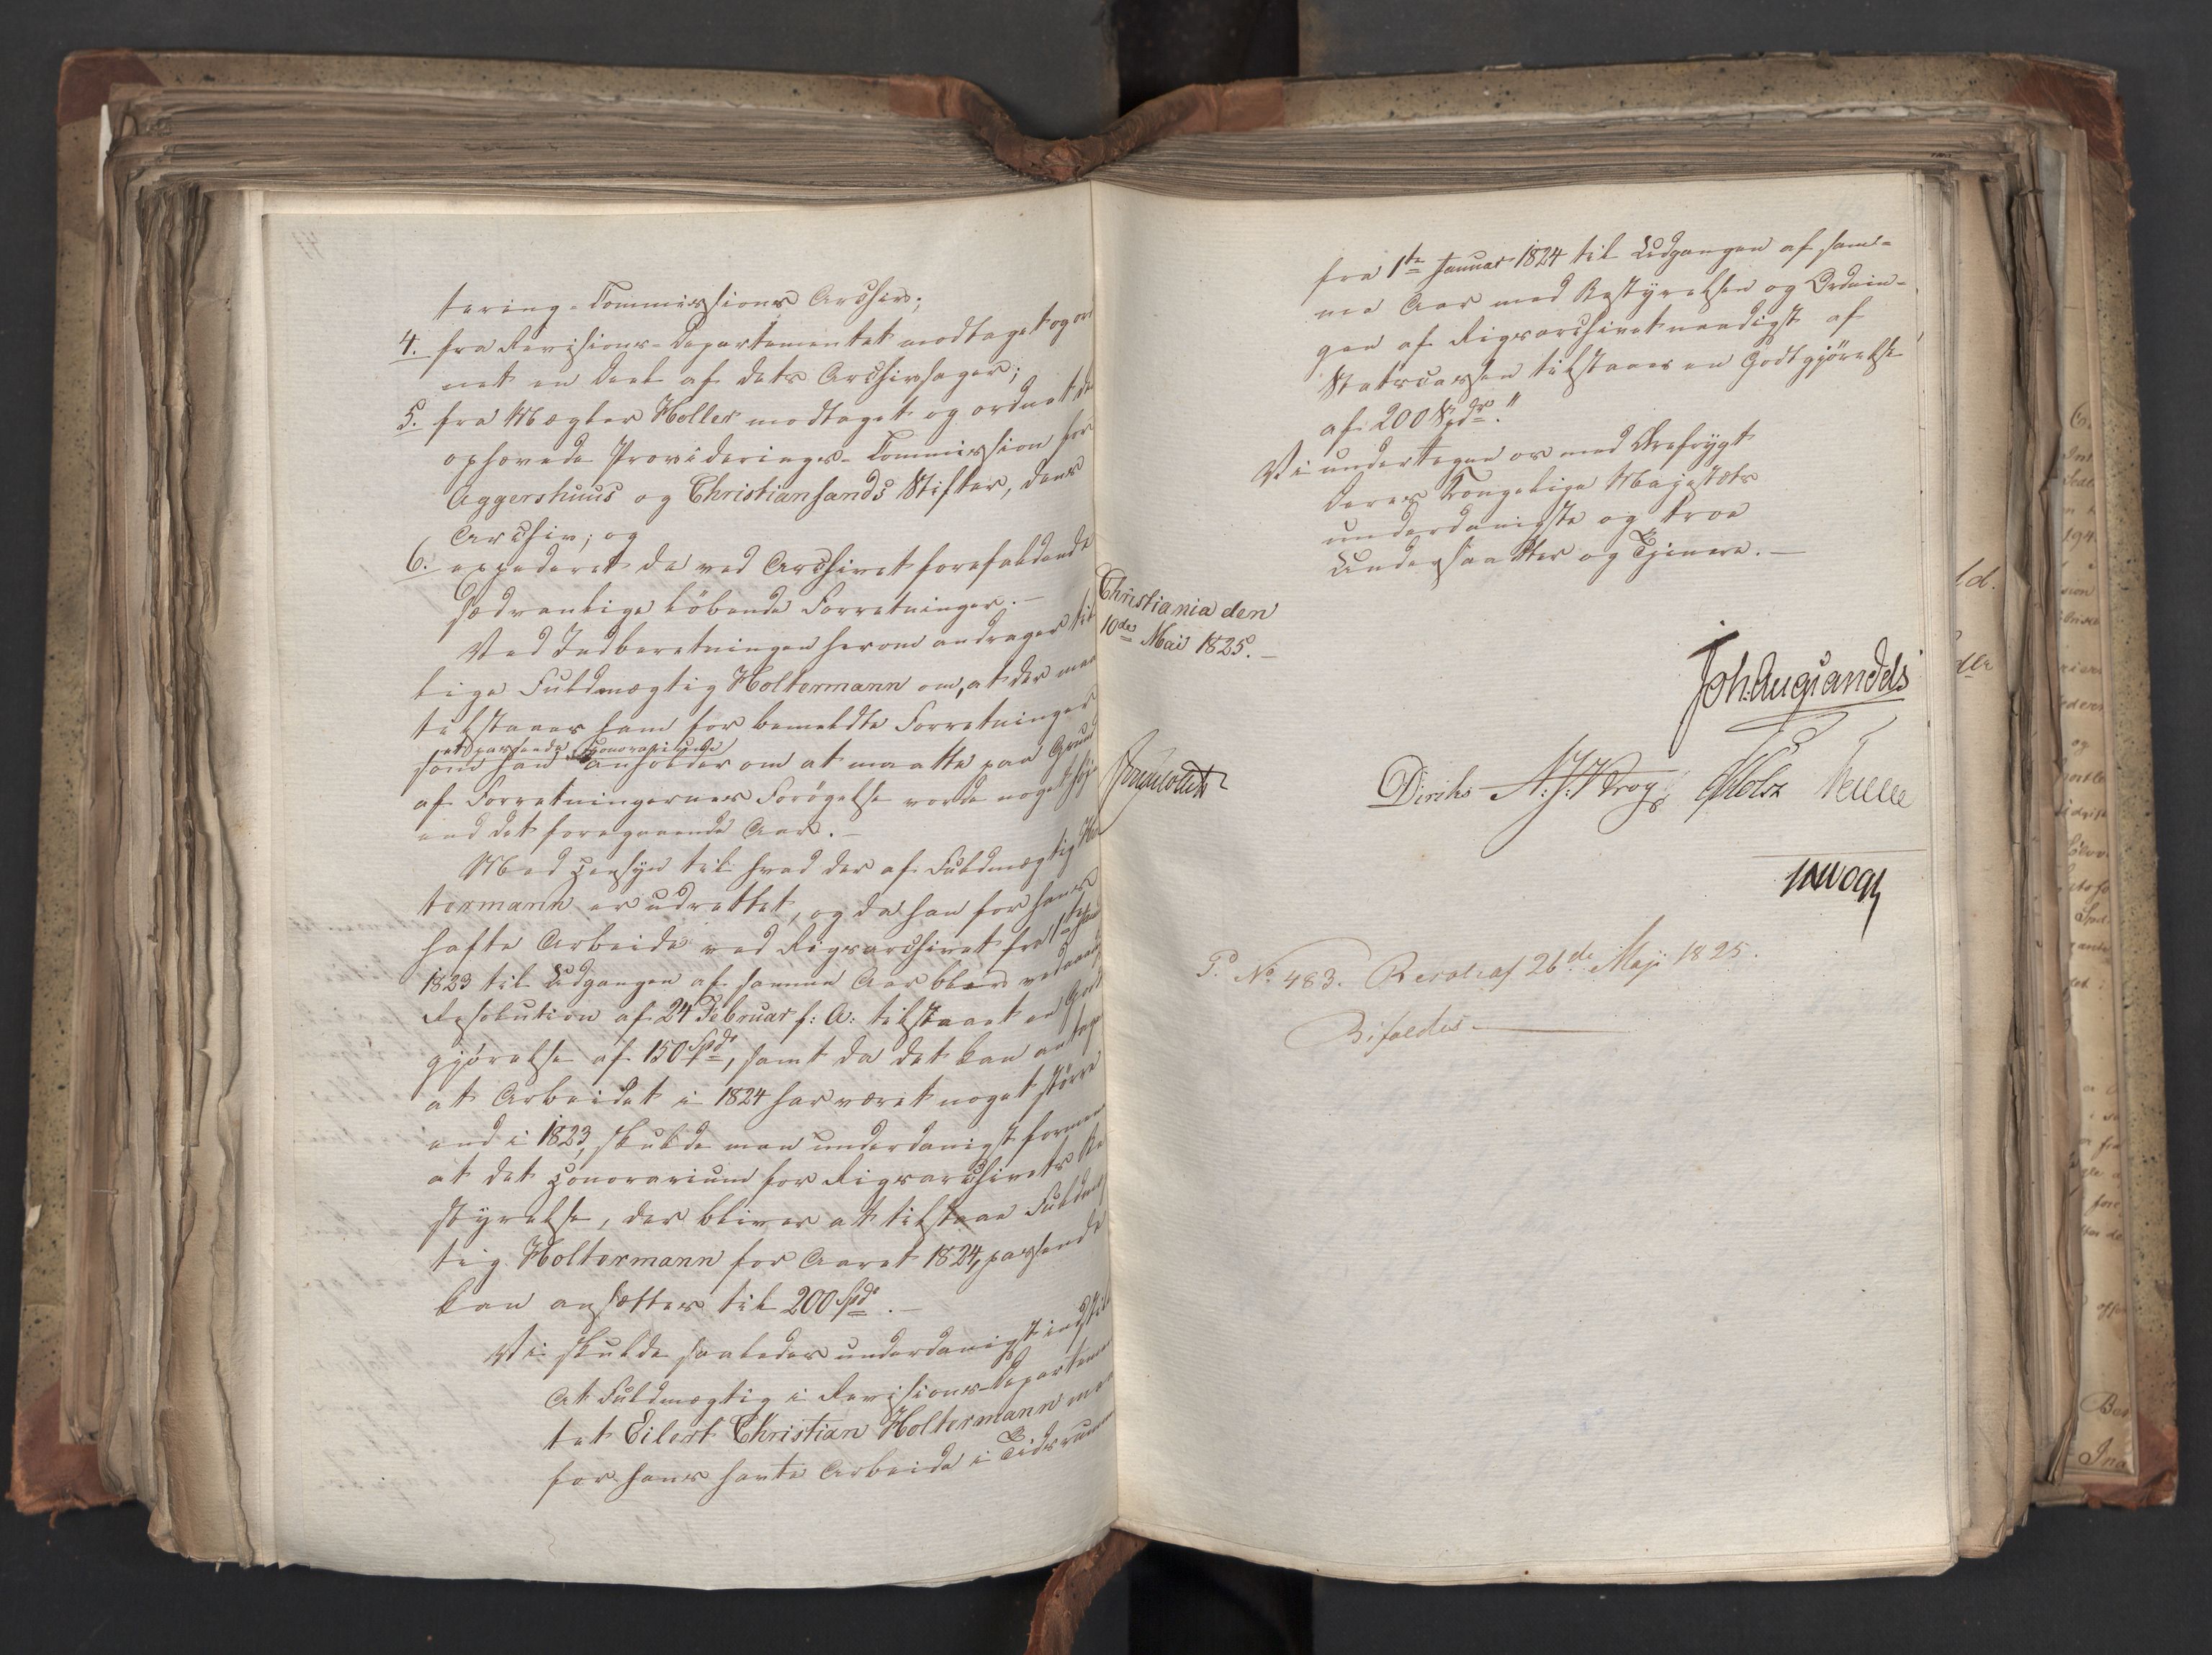 tering-Commissions Archiv;
4. fra Revisions-Departementet modtaget og ord
net en Deel af dets Archivsager;
5. fra Mægler Holler modtaget og ordnet de
ophævede Providerings-Commission for
Aggershuus og Christiansands Stifter, dens
Archiv; og
6. expederet de ved Archivet forefaldende
sædvanlige løbende Forretninger.—
Ved Indberetningen herom andrager til
lige Fuldmægtig Holtermann om, at der maa
tilstaaes ham for bemeldte Forretninger
et passende Honorarium
som han anholder om at maatte paa Grund
af Forretningernes Forøgelse vorde noget høje
end det foregaaende Aar.—
Med Hensyn til hvad der af Fuldmægtig Hol
termann er udrettet, og da han for hans
hafte Arbeide ved Rigsarchivet fra 1ste Janu
1823 til Udgangen af samme Aar blev ved naad
Resolution af 24 Februar f: A: tilstaaet en Godt
gjørelse af 150 Spd, samt da det kan antage
at Arbeidet i 1824 har været noget større
end i 1823, skulde man underdanigst formene
at det Honorarium for Rigsarchivets Be
styrelse, der bliver at tilstaae Fuldmæg
tig Holtermann for Aaret 1824, passende
kan ansættes til 200 Spd.—
Vi skulde saaledes underdanigst indstille
At Fuldmægtig i Revisions-Departemen
tet Eilert Christian Holtermann maa
for hans havte Arbeide i Tidsrummet
fra 1te Januar 1824 til Udgangen af sam-
me Aar med Bestyrelsen og Ordnin-
gen af Rigsarchivet naadigst af
Statscassen tilstaaes en Godtgjørelse
af 200 Spdr."
Vi undertegne os med Ærefrygt
Deres Kongelige Majestæts
underdanigste og troe
Undersaatter og Tjenere.—
Christiania den
10de Mai 1825.—
Joh. Aug. Sandels
Diriks N. J. Krog Holst
JHVogt
P. No. 483. Resol: af 26de Maji 1825.
Bifaldes.